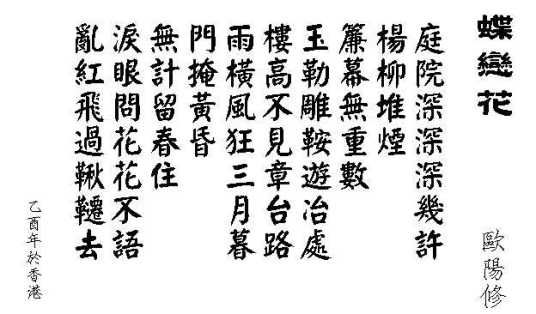 蝶戀花
歐陽修
庭院深深深幾許
楊柳堆煙
簾幕無重數
玉勒雕鞍遊冶處
樓高不見章台路
雨橫風狂三月暮
門掩黃昏
無計留春住
淚眼問花花不語
亂紅飛過鞦韆去
乙酉年於香港